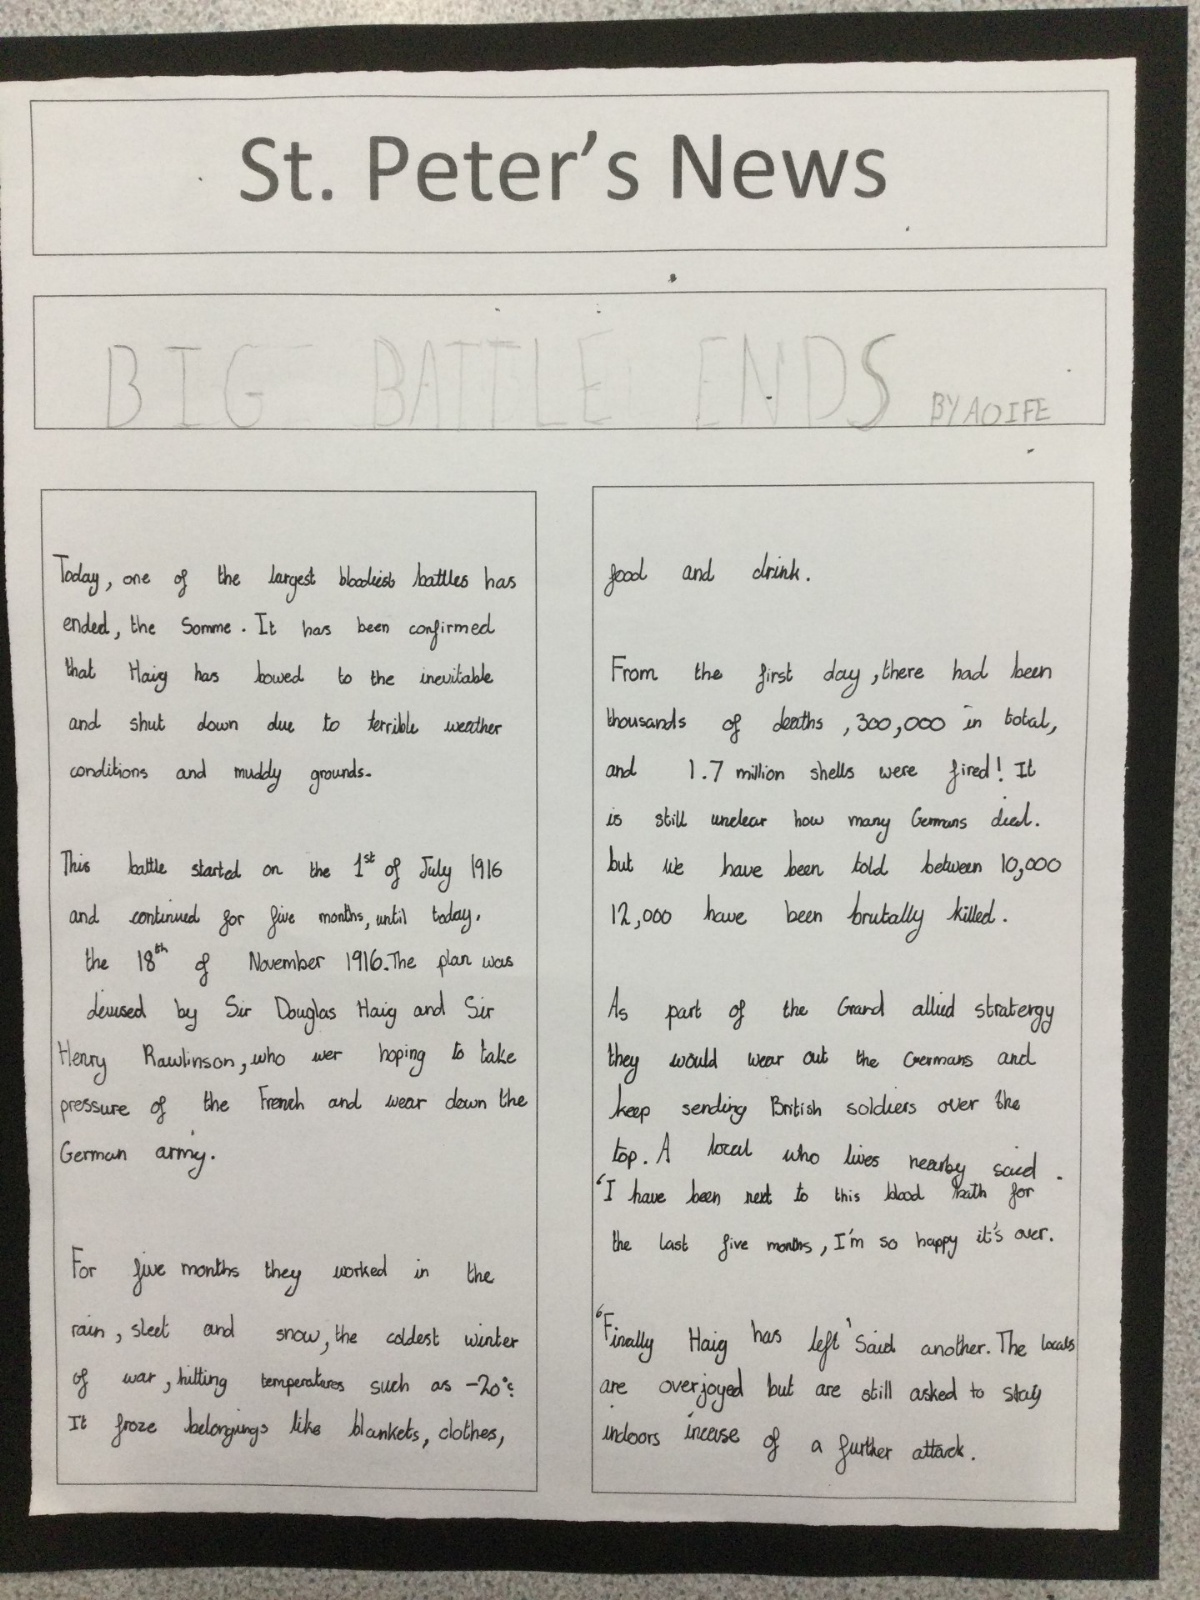 St. Peter's News
BIG BATTLE ENDS BY AOIFE
Today, one of the largest bloodiest battles has
ended, the Somme. It has been confirmed
that Haig has bowed to the inevitable
and shut down due to terrible weather
conditions and muddy grounds.
This battle started on the 1st of July 1916
and continued for five months, until today.
the 18th of November 1916. The plan was
devised by Sir Douglas Haig and Sir
Henry Rawlinson, who wer hoping to take
pressure of the French and wear down the
German army.
For five months they worked in the
rain, sleet and snow, the coldest winter
of war, hitting temperatures such as -20°c.
It froze belongings like blankets, clothes,
food and drink.
From the first day, there had been
thousands of deaths, 300,000 in total,
and 1.7 million shells were fired! It
is still unclear how many Germans died.
but we have been told between 10,000
12,000 have been brutally killed.
As part of the Grand allied stratergy
they would wear out the Germans and
keep sending British soldiers over the
top. A local who lives nearby said.
'I have been next to this blood bath for
the last five months, I'm so happy it's over.
'Finally Haig has left' said another. The locals
are overjoyed but are still asked to stay
indoors incase of a further attack.